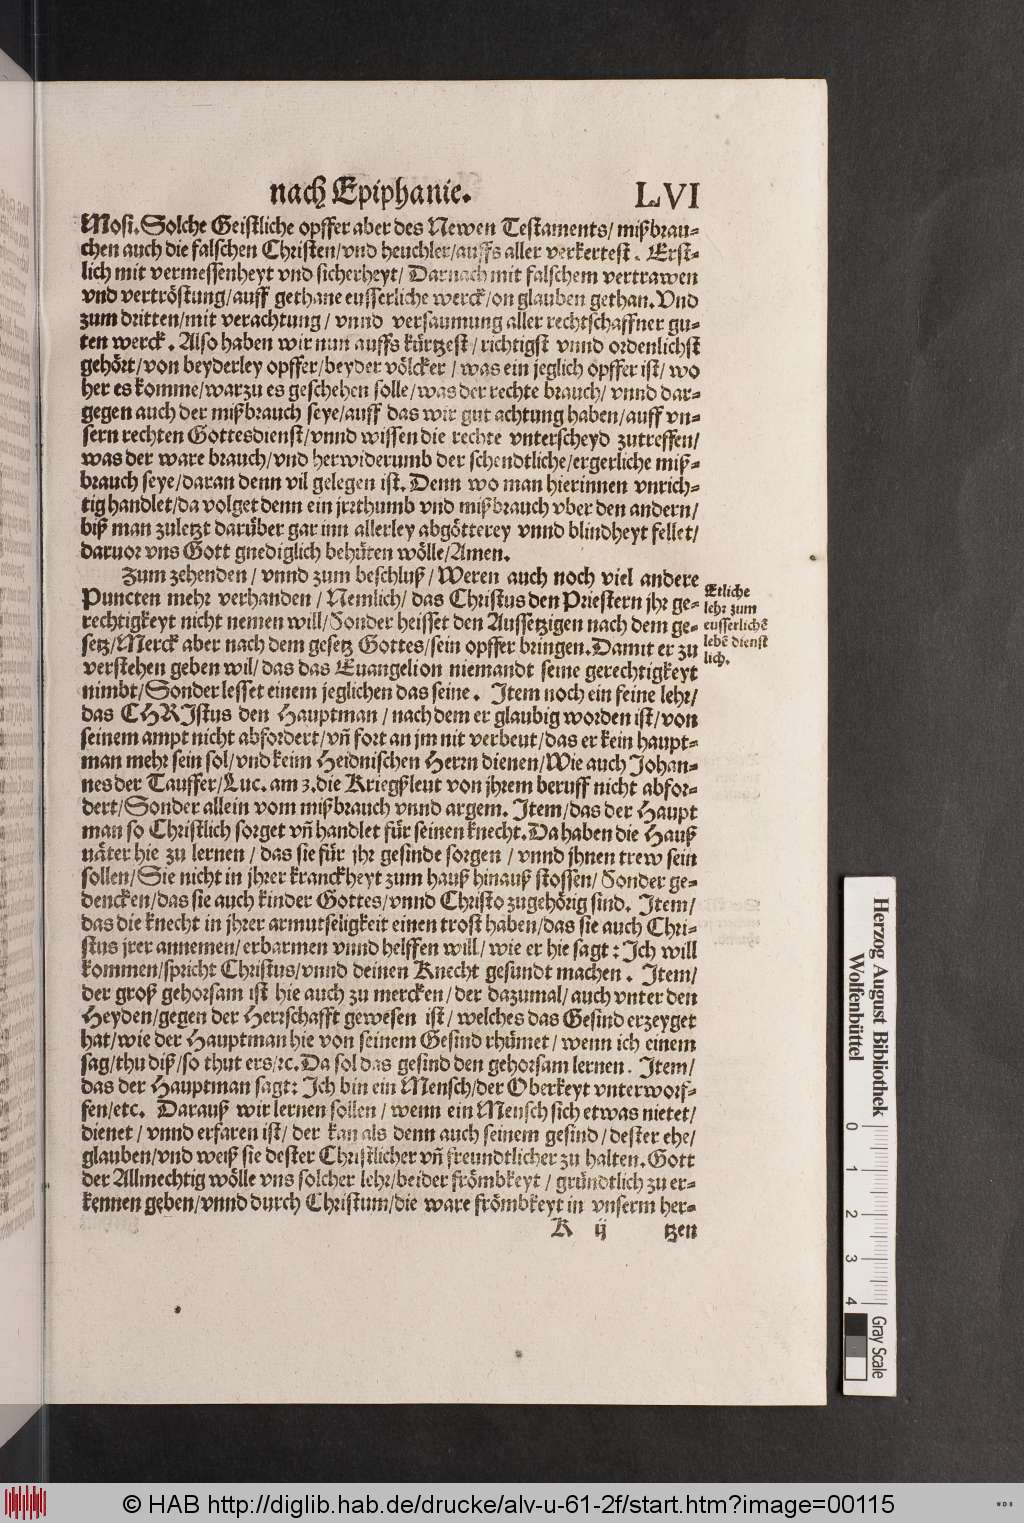 nach Epiphanie. LVI
Mosi. Solche Geistliche opffer aber des Newen Testaments/ mißbrau-
chen auch die falschen Christen/vnd heuchler/auffs aller verkertest. Erst-
lich mit vermessenheyt vnd sicherheyt/ Darnach mit falschem vertrawen
vnd vertröstung/auff gethane eusserliche werck/on glauben gethan. Vnd
zum dritten/mit verachtung/ vnnd versaumung aller rechtschaffner gu-
ten werck. Also haben wir nun auffs kürtzest/ richtigst vnnd ordenlichst
gehört/von beyderley opffer/beyder völcker/ was ein jeglich opffer ist/ wo
her es komme/warzu es geschehen solle/was der rechte brauch/ vnnd dar-
gegen auch der mißbrauch seye/auff das wir gut achtung haben/auff vn-
sern rechten Gottesdienst/vnnd wissen die rechte vnterscheyd zutreffen/
was der ware brauch/vnd herwiderumb der schendtliche/ergerliche miß-
brauch seye/daran denn vil gelegen ist. Denn wo man hierinnen vnrich-
tig handlet/da volget denn ein jrrthumb vnd mißbrauch vber den andern/
biß man zuletzt darüber gar inn allerley abgötterey vnnd blindheyt fellet/
daruor vns Gott gnediglich behüten wölle/Amen.
Zum zehenden/ vnnd zum beschluß/ Weren auch noch viel andere
Puncten mehr verhanden/ Nemlich/ das Christus den Priestern jhr ge-
rechtigkeyt nicht nemen will/ Sonder heisset den Aussetzigen nach dem ge-
setz/Merck aber nach dem gesetz Gottes/sein opffer bringen. Damit er zu
verstehen geben wil/das das Euangelion niemandt seine gerechtigkeyt
nimbt/Sonder lesset einem jeglichen das seine. Item noch ein feine lehr/
das CHRJstus den Hauptman/nach dem er glaubig worden ist/von
seinem ampt nicht abfordert/vñ fort an jm nit verbeut/das er kein haupt-
man mehr sein sol/vnd keim Heidnischen Herrn dienen/Wie auch Johan-
nes der Tauffer/Luc. am 3. die Kriegßleut von jhrem beruff nicht abfor-
dert/Sonder allein vom mißbrauch vnnd argem. Item/das der Haupt
man so Christlich sorget vñ handlet für seinen knecht. Da haben die Hauß
uäter hie zu lernen/ das sie für jhr gesinde sorgen/ vnnd jhnen trew sein
sollen/Sie nicht in jhrer kranckheyt zum hauß hinauß stossen/ Sonder ge-
dencken/das sie auch kinder Gottes/vnnd Christo zugehörig sind. Item/
das die knecht in jhrer armutseligkeit einen trost haben/das sie auch Chri-
stus jrer annemen/erbarmen vnnd helffen will/ wie er hie sagt: Ich will
kommen/spricht Christus/vnnd deinen Knecht gesundt machen. Item/
der groß gehorsam ist hie auch zu mercken/der dazumal/auch vnter den
Heyden/gegen der Herrschafft gewesen ist/ welches das Gesind erzeyget
hat/wie der Hauptman hie von seinem Gesind rhümet/ wenn ich einem
sag/thu diß/so thut ers/ꝛc. Da sol das gesind den gehorsam lernen. Item/
das der Hauptman sagt: Ich bin ein Mensch/der Oberkeyt vnterworf-
fen/etc. Darauß wir lernen sollen/ wenn ein Mensch sich etwas nietet/
dienet/ vnnd erfaren ist/ der kan als denn auch seinem gesind/dester ehe/
glauben/vnd weiß sie dester Christlicher vñ freundtlicher zu halten. Gott
der Allmechtig wölle vns solcher lehr/beider frömbkeyt/ gründtlich zu er-
kennen geben/vnnd durch Christum/die ware frömbkeyt in vnserm her-
K ij tzen
Etliche
lehr zum
eusserlichē
lebē dienst
lich.
Herzog August Bibliothek
Wolfenbüttel
0 1 2 3 4
Gray Scale
© HAB http://diglib.hab.de/drucke/alv-u-61-2f/start.htm?image=00115